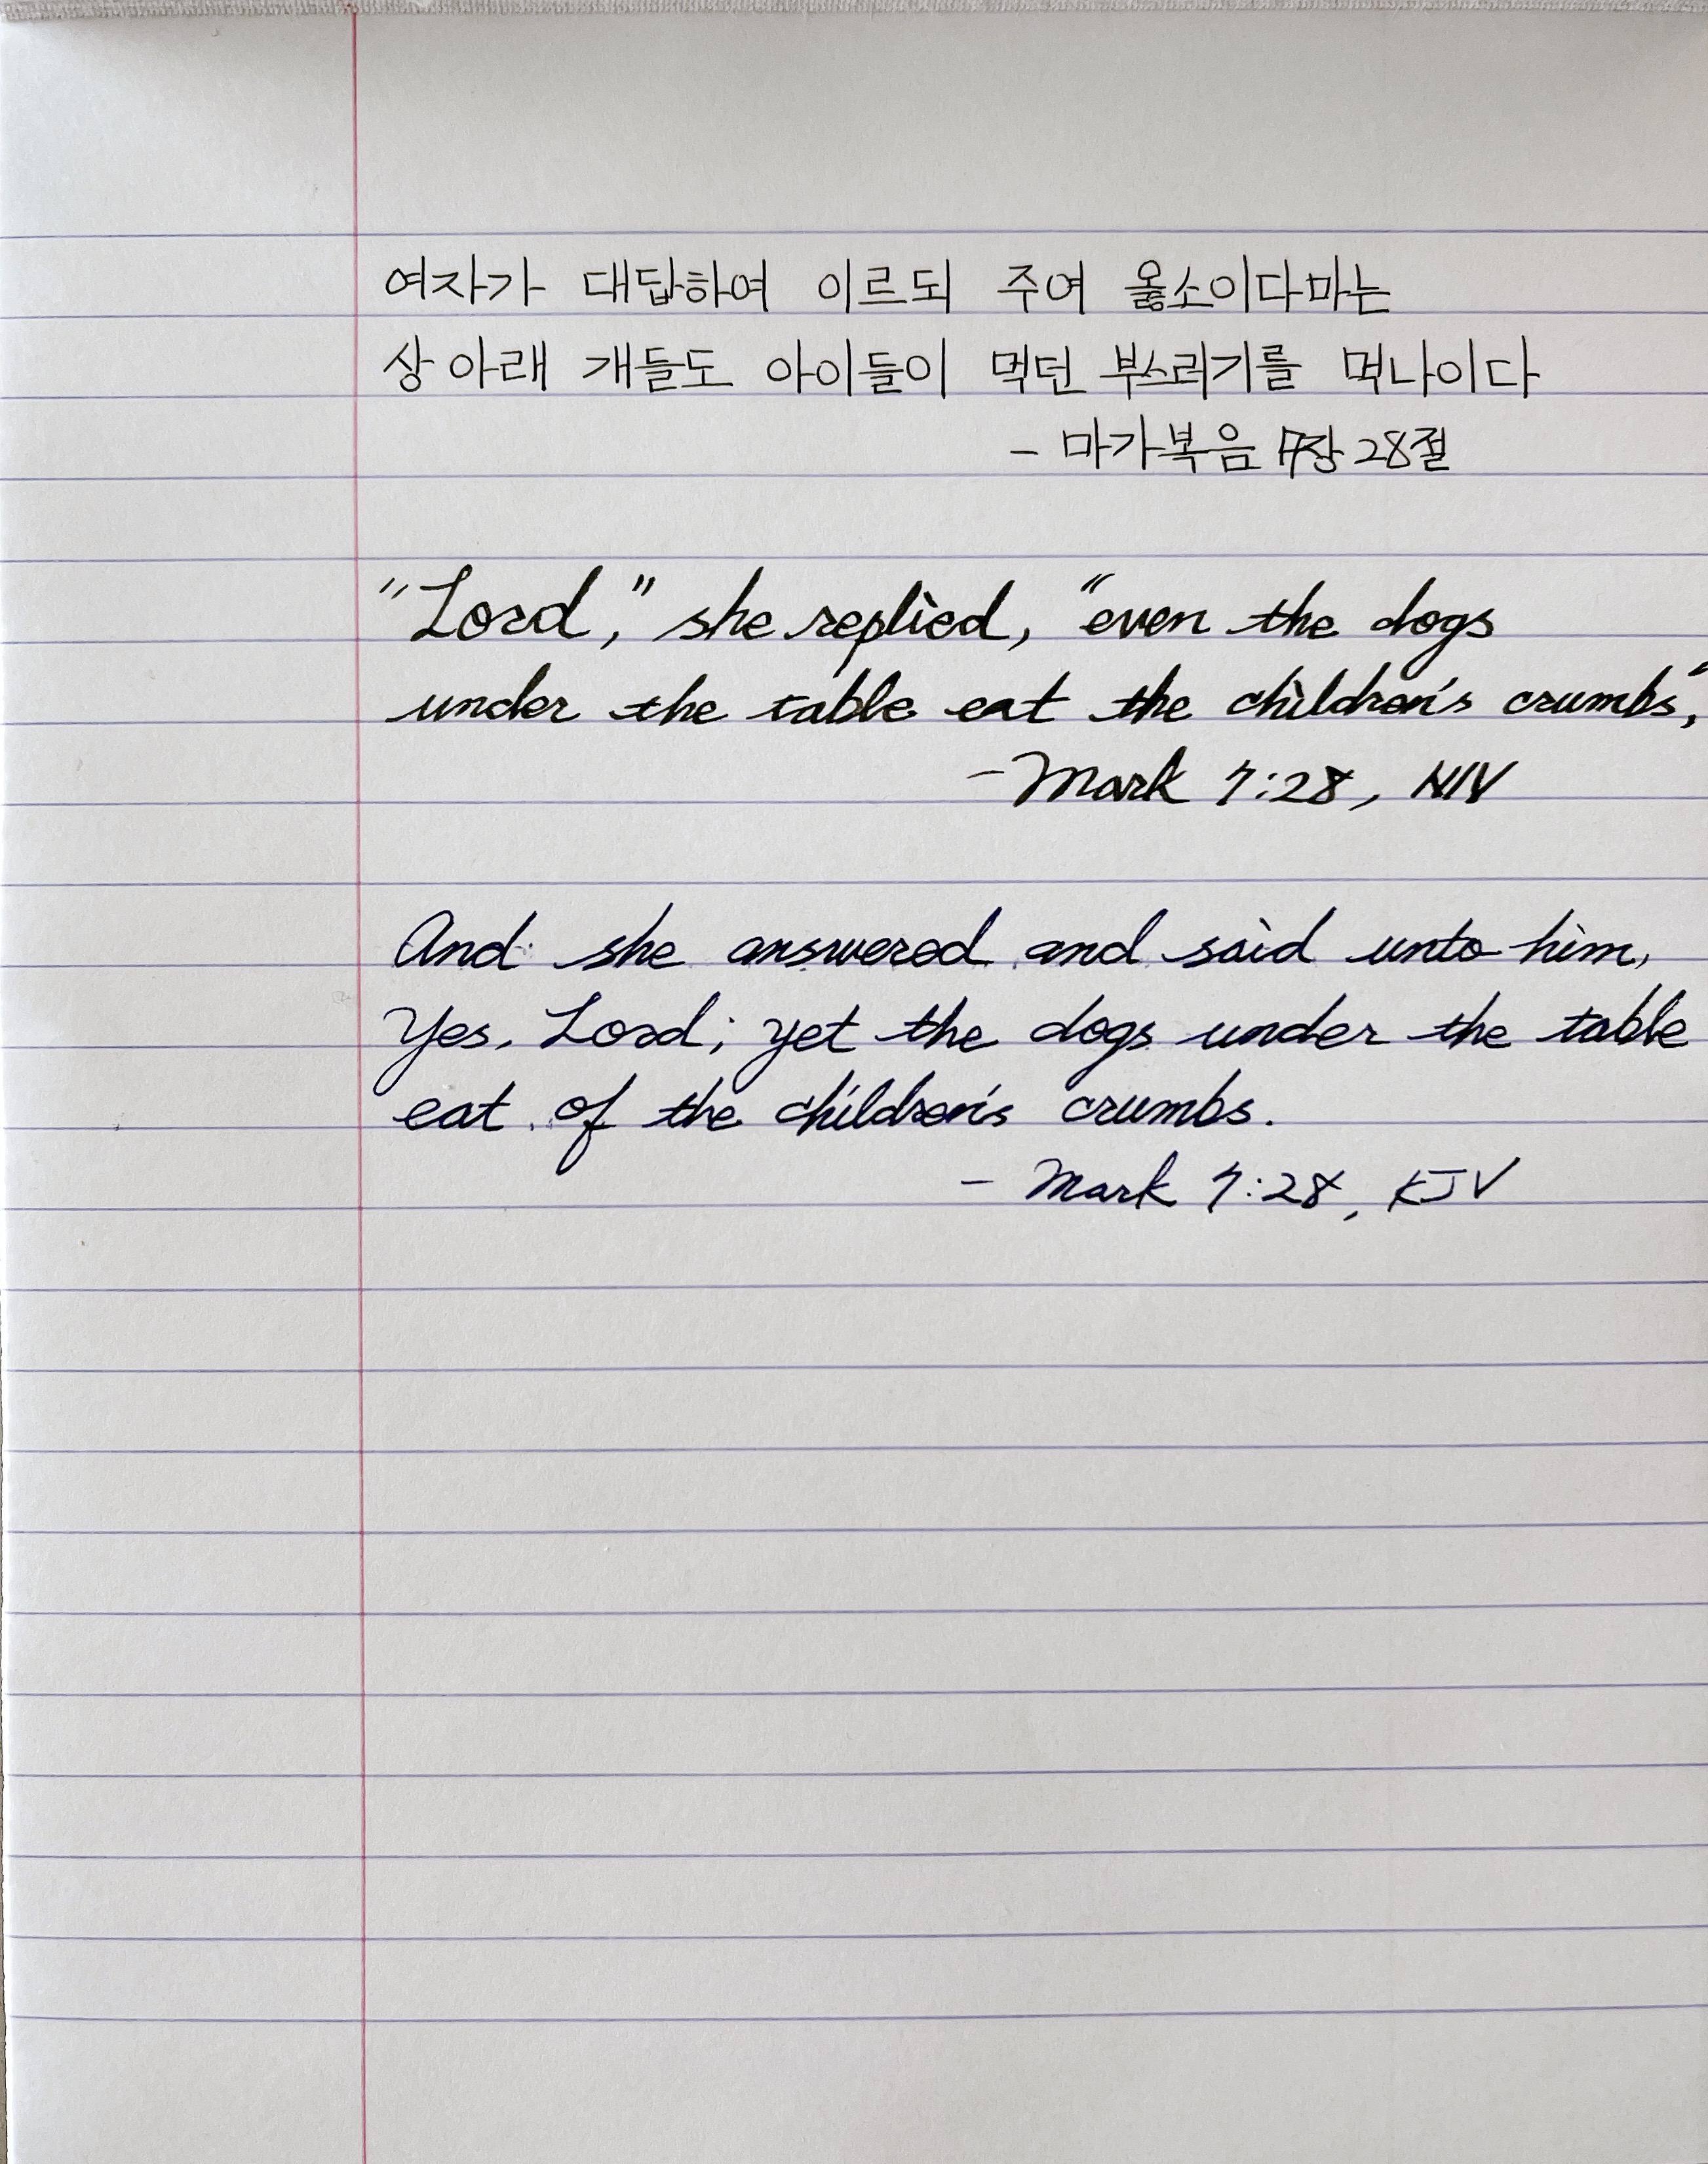 여자가 대답하여 이르되 주여 옳소이다마는
상 아래 개들도 아이들이 먹던 부스러기를 먹나이다
- 마가복음 7장 28절
"Lord," she replied, "even the dogs
under the table eat the children's crumbs."
- Mark 7:28, NIV
And she answered and said unto him,
Yes, Lord; yet the dogs under the table
eat of the children's crumbs.
- Mark 7:28, KJV